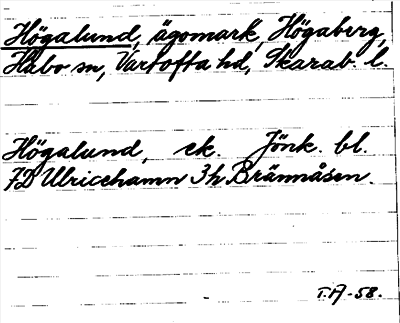 Högalund, ägomark, Högaberg,
Habo sn, Vartofta hd, Skarab. l.
Högalund, ek. Jönk. bl.
7D Ulricehamn 3h Brännåsen.
T.A-58.